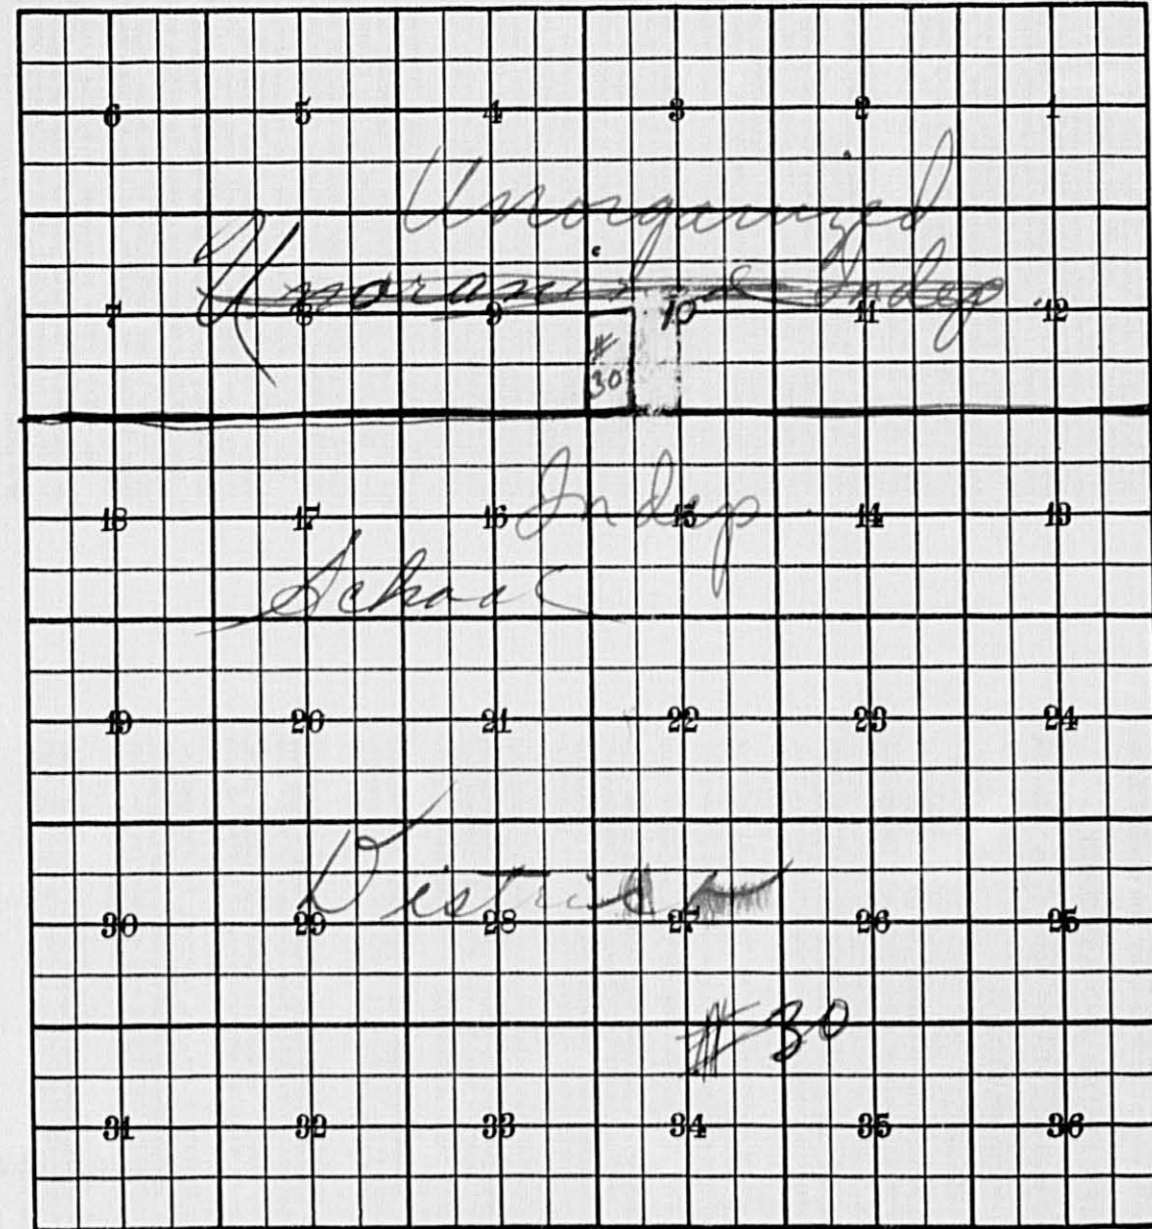 6 5 4 3 2 1
Unorganized
Unoranized Indep
7 8 9 10 11 12
#
30
Indep
18 17 16 15 14 13
School
19 20 21 22 23 24
District
30 29 28 27 26 25
#30
31 32 33 34 35 36